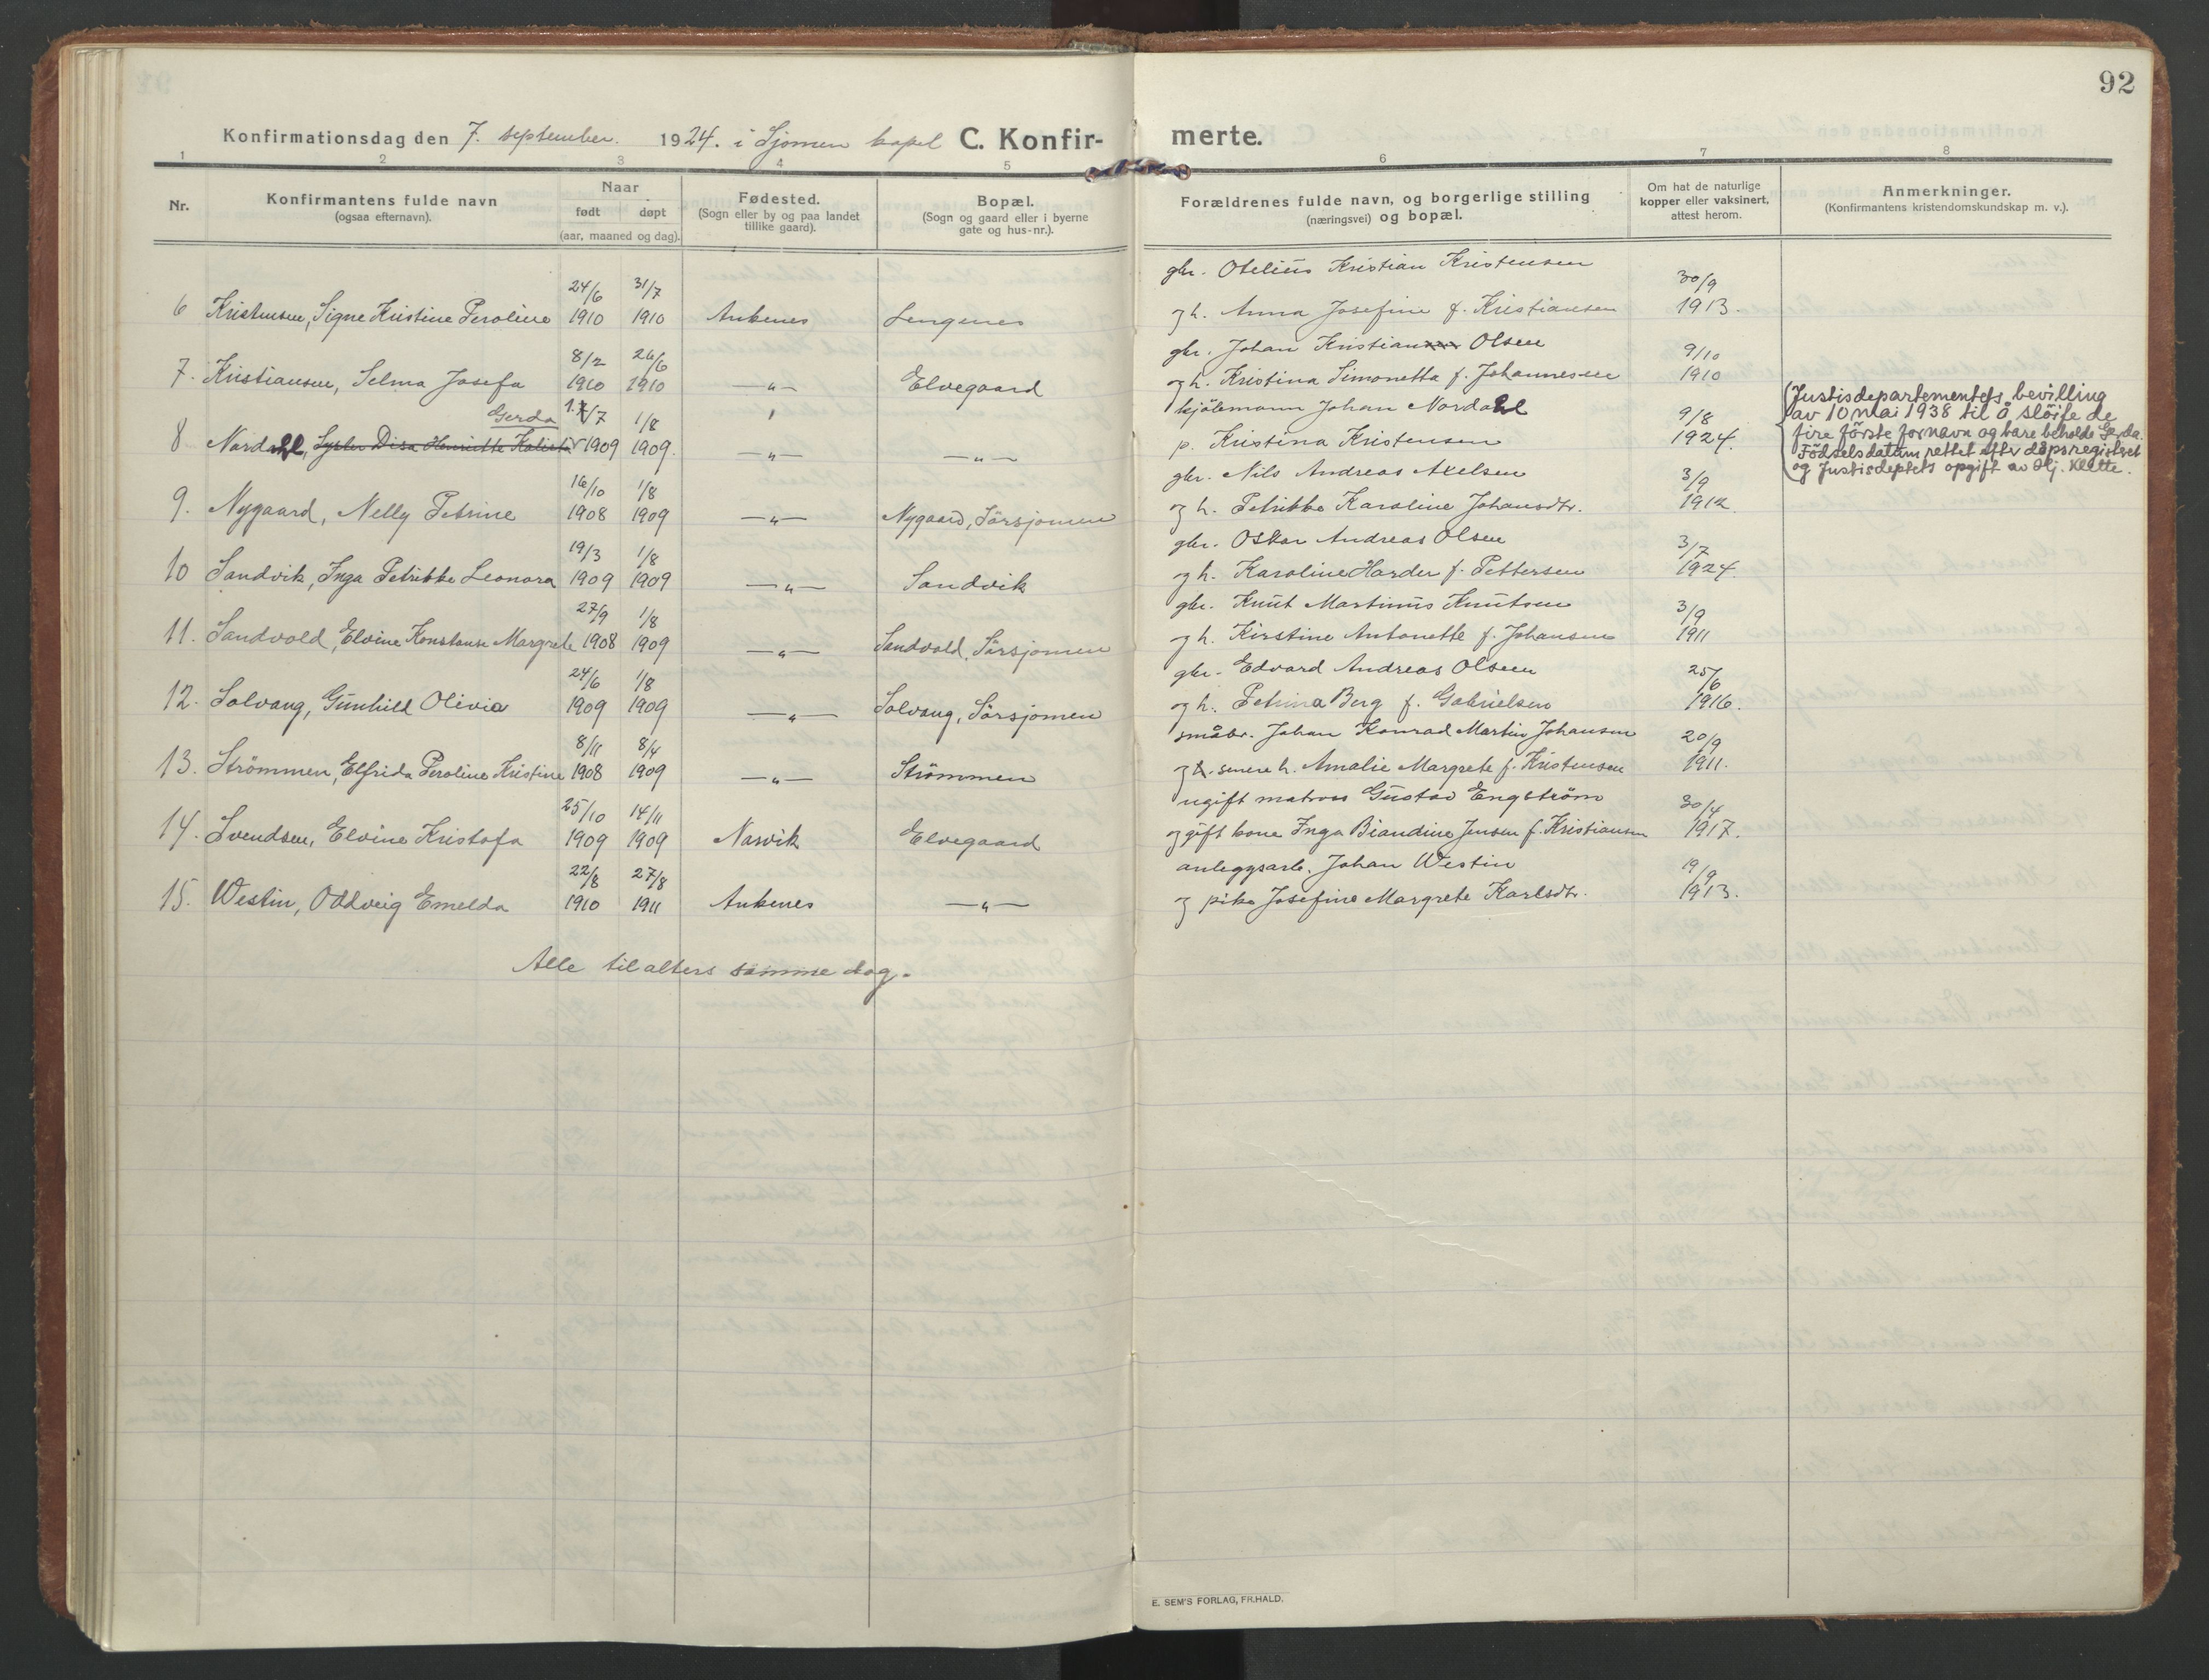 92
Konfirmationsdag den 7. september. 1924. i Sjomen kapel C. Konfir-
merte.
1 2 3 4 5 6 7 8
Nr.
Konfirmantens fulde navn
(ogsaa efternavn).
Naar
født døpt
(aar, maaned og dag).
Fødested.
(Sogn eller by og paa landet
tillike gaard).
Bopæl.
(Sogn og gaard eller i byerne
gate og hus-nr.).
Forældrenes fulde navn, og borgerlige stilling
(næringsvei) og bopæl.
Om hat de naturlige
kopper eller vaksinert,
attest herom.
Anmerkninger.
(Konfirmantens kristendomskundskap m. v.).
24/6 31/7 gbr. Otelius Kristian Kristensen 30/9
6 Kristensen, Signe Kristine Peroline 1910 1910 Ankenes Lengenes og h. Anna Josefine f. Kristiansen 1913.
8/2 26/6 gbr. Johan Kristian Olsen 9/10
7. Kristiansen, Selma Josefa 1910 1910 —"— Elvegaard og h. Kristina Simonetta f. Johannesen 1910
Gerda 1/7 1/8 kjölemann Johan Nordahl 9/8
8 Nordahl, Syster Disa Henriette Kalista 1909 1909. —"— —"— p. Kristina Kristensen 1924.
(Justisdepartementets bevilling
av 10 mai 1938 til å slöife de
fire förste fornavn og bare beholde Gerda.
Födselsdatum rettet efter dåpsregistret
og Justisdeptets opgift av Hj. Klette.
16/10 1/8 gbr. Nils Andreas Axelsen 3/9
9. Nygaard, Nelly Petrine 1908 1909 —"— Nygaard, Sörsjomen og h. Petrikke Karoline Johansdtr. 1912
19/3 1/8 gbr. Oskar Andreas Olsen 3/7
10 Sandvik, Inga Petrikke Leonora 1909 1909 —"— Sandvik og h. Karoline Harder f. Pettersen 1924.
27/9 1/8 gbr. Knut Martinus Knutsen 3/9
11. Sandvold, Elvine Konstanse Margrete 1908 1909 —"— Sandvold, Sörsjomen og h. Kirstine Antonette f. Johansen 1911
24/6 1/8 gbr. Edvard Andreas Olsen 25/6
12. Solvang, Gunhild Olivia 1909 1909 —"— Solvang, Sörsjomen og h. Petrina Berg f. Gabrielsen 1916.
8/11 8/4 småbr. Johan Konrad Martin Johansen 20/9
13. Strömmen, Elfrida Peroline Kristine 1908 1909 —"— Strömmen og h. senere h. Amalie Margrete f. Kristensen 1911.
25/10 14/11 ugift matros Gustav Engström 30/4
14. Svendsen, Elvine Kristofa 1909 1909 Narvik Elvegaard og gift kone Inga Biandine Jensen f. Kristiansen 1917.
22/8 27/8 anleggsarb. Johan Westin 19/9
15. Westin, Oddveig Emelda 1910 1911 Ankenes —"— og pike Josefine Margrete Karlsdtr. 1913.
Alle til alters samme dag.
E. SEM'S FORLAG, FR.HALD.